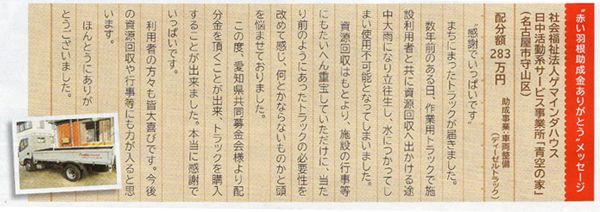 "赤い羽根助成金ありがとう"メッセージ
社会福祉法人ゲマインダハウス
日中活動系サービス事業所「青空の家」
（名古屋市守山区）
配分額 283万円
助成事業：車両整備
（ディーゼルトラック）
"感謝でいっぱいです"
まちにまったトラックが届きました。
数年前のある日、作業用トラックで施
設利用者と共に資源回収へ出かける途
中大雨になり立往生し、水につかってし
まい使用不可能となってしまいました。
資源回収はもとより、施設の行事等
にもたいへん重宝していただけに、当た
り前のようにあったトラックの必要性を
改めて感じ、何とかならないものかと頭
を悩ませておりました。
この度、愛知県共同募金会様より配
分金を頂くことが出来、トラックを購入
することが出来ました。本当に感謝で
いっぱいです。
利用者の方々も皆大喜びです。今後
の資源回収や行事等にも力が入ると思
います。
ほんとうにありが
とうございました。